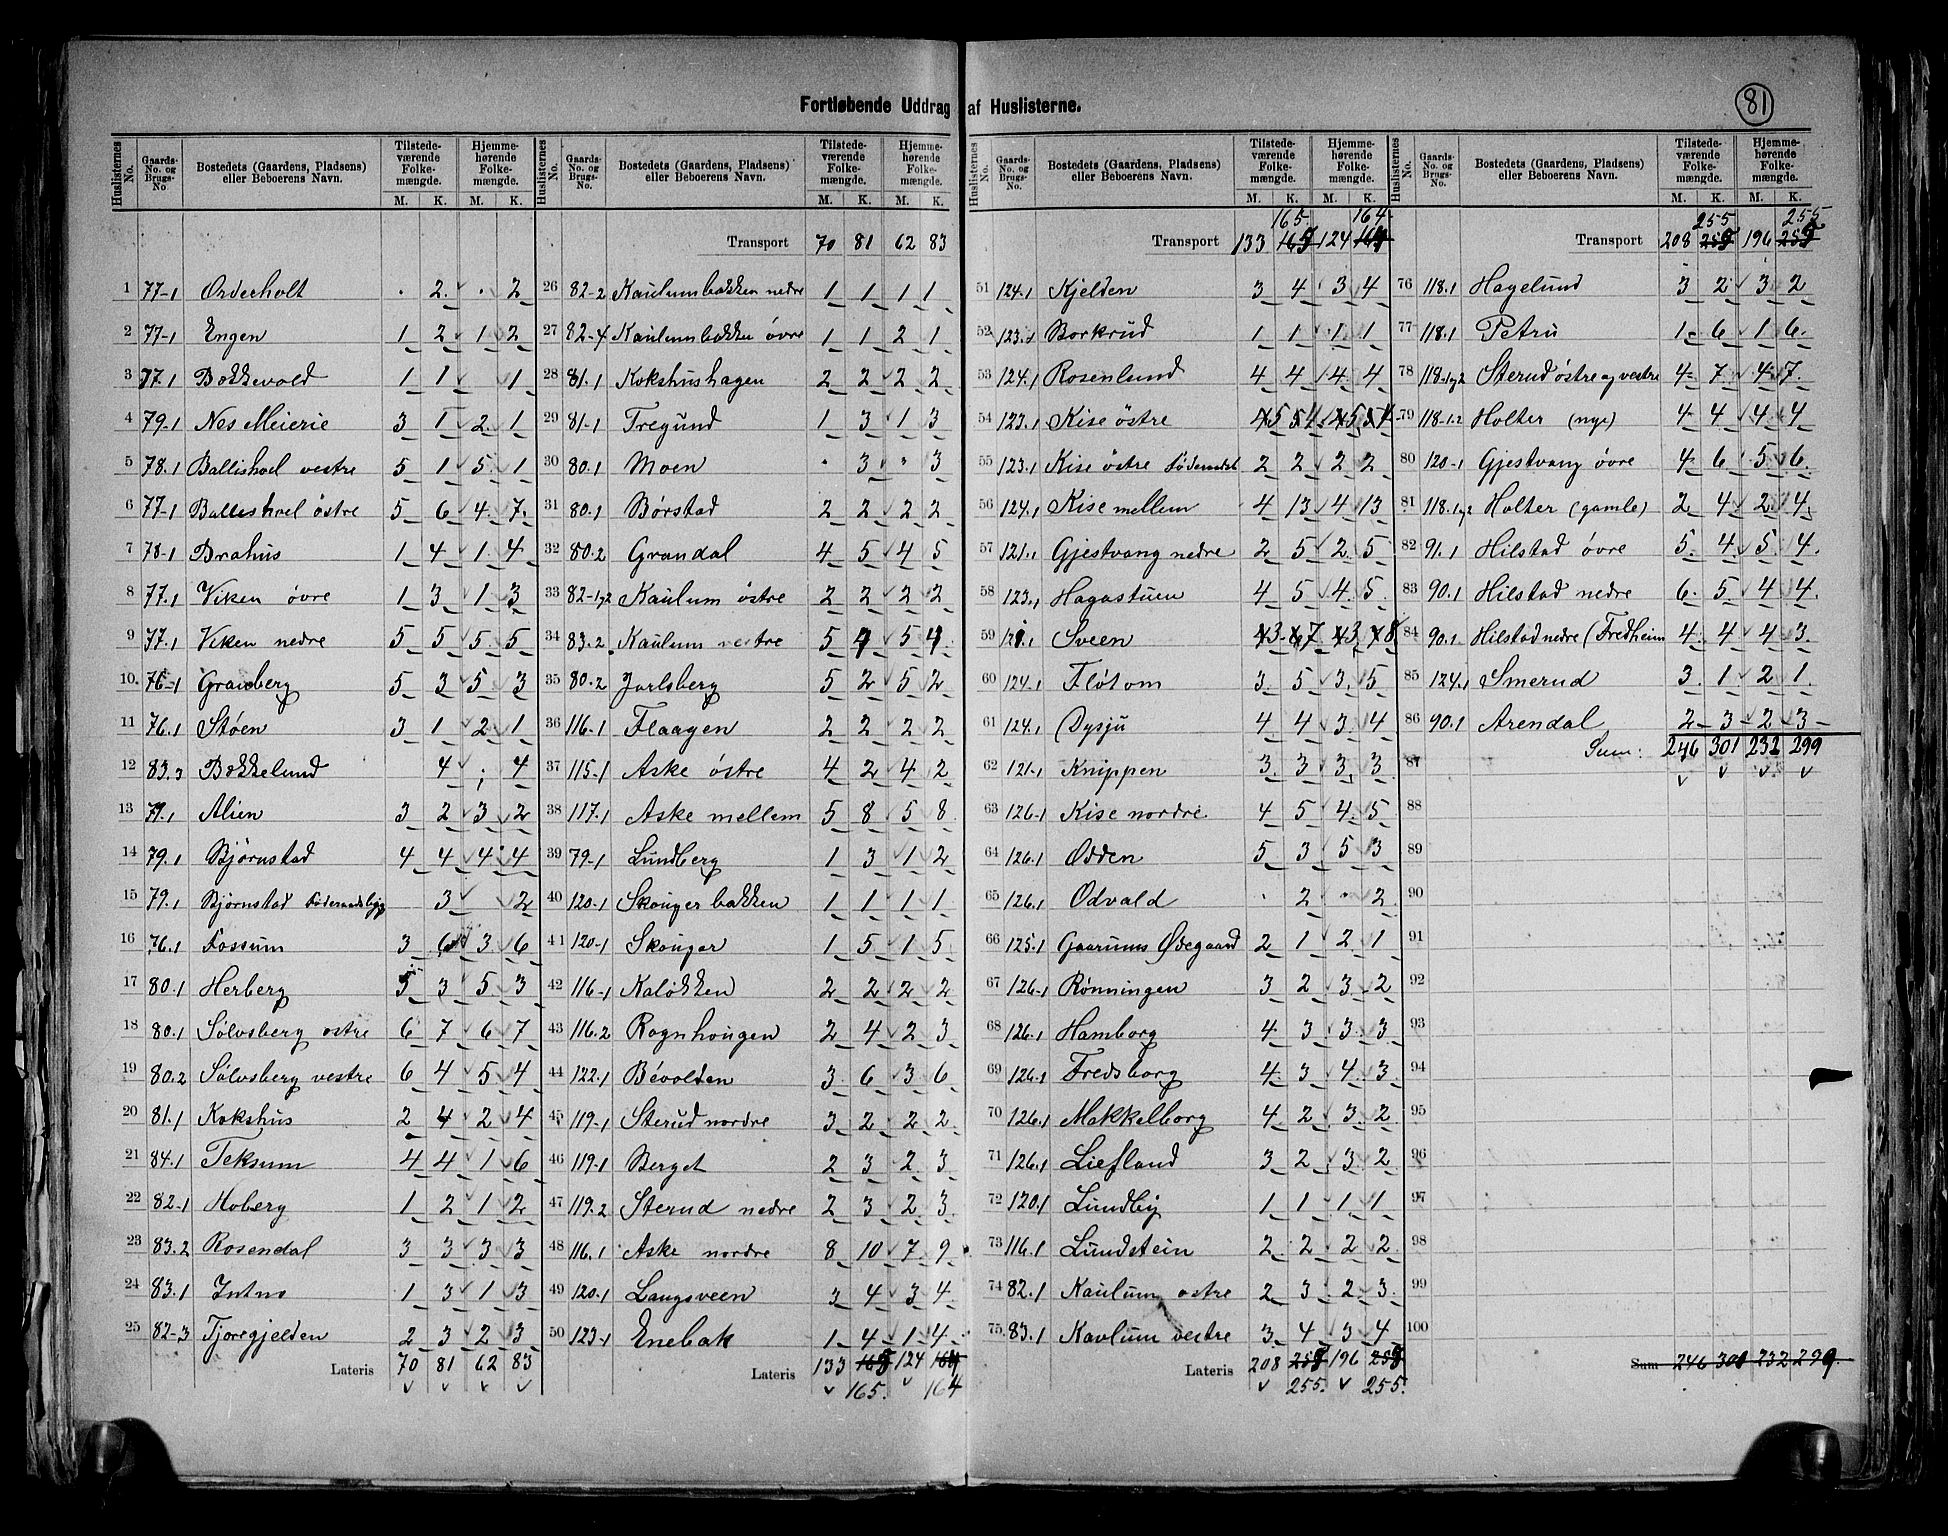 Fortløbende Uddrag af Huslisterne.
81
Huslisternes No. | Gaards-No. og Brugs-No. | Bostedets (Gaardens, Pladsens) eller Beboerens Navn. | Tilstedeværende Folkemængde. M. K. | Hjemmehørende Folkemængde. M. K.
1 77-1 Orderholt . 2 . 2
2 77-1 Engen 1 2 1 2
3 77.1 Bekkevold 1 1 1
4 79-1 Nes Meierie 3 1 2 1
5 78.1 Ballishoel vestre 5 1 5 1
6 77-1 Ballishoel östre 5 6 4 7
7 78-1 Brahus 1 4 1 4
8 77.1 Viken övre 1 3 1 3
9 77.1 Viken nedre 5 5 5 5
10 76-1 Granberg 5 3 5 3
11 76.1 Støen 3 1 2 1
12 83.3 Bekkelund 4 . 4
13 79.1 Alien 3 2 3 2
14 79.1 Bjørnstad 4 4 4 4
15 79.1 Bjørnstad 3 2
16 76.1 Fossum 3 6 3 6
17 80.1 Herberg 5 3 5 3
18 80.1 Sølvsberg ostre 6 7 6 7
19 80.2 Sølvsberg vestre 6 4 5 4
20 81.1 Kokshus 2 4 2 4
21 84.1 Teksum 4 4 1 6
22 82-1 Hoberg 1 2 1 2
23 83.2 Rosendal 3 3 3 3
24 83.1 1 3 1 3
25 82-3 Tjorrgjelden 2 3 2 3
Lateris 70 81 62 83
Transport 70 81 62 83
26 82-2 Kaulumbakken nedre 1 1 1 1
27 82-4 Kaulumbakken övre 1 1 2 1
28 81.1 Kokshushagen 2 2 2 2
29 81-1 Tregund 1 3 1 3
30 80.1 Moen . 3 . 3
31 80.1 Børstad 2 2 2 2
32 80.2 Grandal 4 5 4 5
33 82-1,2 Kaulum östre 2 2 2 2
34 83.2 Kaulum vestre 5 4 5 4
35 80.2 Jarlsberg 5 2 5 2
36 116-1 Flaagen 2 2 2 2
37 115-1 Aske östre 4 2 4 2
38 117.1 Aske mellem 5 8 5 8
39 79-1 Lundberg 1 3 1 2
40 120-1 Skougerbakken 1 1 1 1
41 120-1 Skouger 1 5 1 5
42 116-1 Kaløkken 2 2 2 2
43 116.2 Rognhougen 2 4 2 3
44 122.1 Bévolden 3 6 3 6
45 119-1 Sterud nordre 3 2 2 2
46 119-1 Berget 2 3 2 3
47 119.2 Sterud nedre 2 3 2 3
48 116.1 Aske nordre 8 10 7 9
49 120.1 Langsveen 3 4 3 4
50 123-1 Enebak 1 4 1 4
Lateris 133 124
165. 164
165 164
Transport 133 124
51 124.1 Kjelden 3 4 3 4
52 123.1 Borkrud 1 1 1 1
53 124.1 Rosenlund 4 4 4 4
54 123.1 Kise östre 5 4 5 4
55 123.1 Kise östre 2 2 2 2
56 124.1 Kise mellem 4 13 4 13
57 121.1 Gjestvang nedre 2 5 2 5
58 123.1 Hagastuen 4 5 4 5
59 121.1 Sveen 3 7 3 8
60 124-1 Fløtom 3 5 3 5
61 124.1 Dysju 4 4 3 4
62 121-1 Knippen 3 3 3 3
63 126-1 Kise nordre 4 5 4 5
64 126.1 Odden 5 3 5 3
65 126.1 Odvald . 2 . 2
66 125.1 Gaarums Ødegaard 2 1 2 1
67 126-1 Rønningen 3 2 3 2
68 126-1 Hamborg 4 3 3 3
69 126.1 Fredsborg 4 3 4 3
70 126.1 Makkelborg 4 2 3 2
71 126.1 Liefland 3 2 3 2
72 120.1 Lundby 1 1 1 1
73 116.1 Lundstein 2 2 2 2
74 82.1 Kaulum ostre 2 3 2 3
75 83.1 Kavlum vestre 3 4 3 4
Lateris 208 196
255. 255.
255 255
Transport 208 196
76 118.1 Hagelund 3 2 3 2
77 118.1 Petru 1 6 1 6
78 118-1,2 Sterud östre og vestre 4 7 4 7
79 118-1.2 Holter (nye) 4 4 4 4
80 120-1 Gjestvang övre 4 6 5 6
81 118.1,2 Holter (gamle) 2 4 2 4
82 91.1 Hilstad övre 5 4 5 4
83 90.1 Hilstad nedre 6 5 4 4
84 90.1 Hilstad nedre (Fredheim 4 4 4 3
85 124.1 Smerud 3 1 2 1
86 90.1 Arendal 2 3 2 3
Sum: 246 301 232 299
87
88
89
90
91
92
93
94
95
96
97
98
99
100
Sum 246 301 232 299.